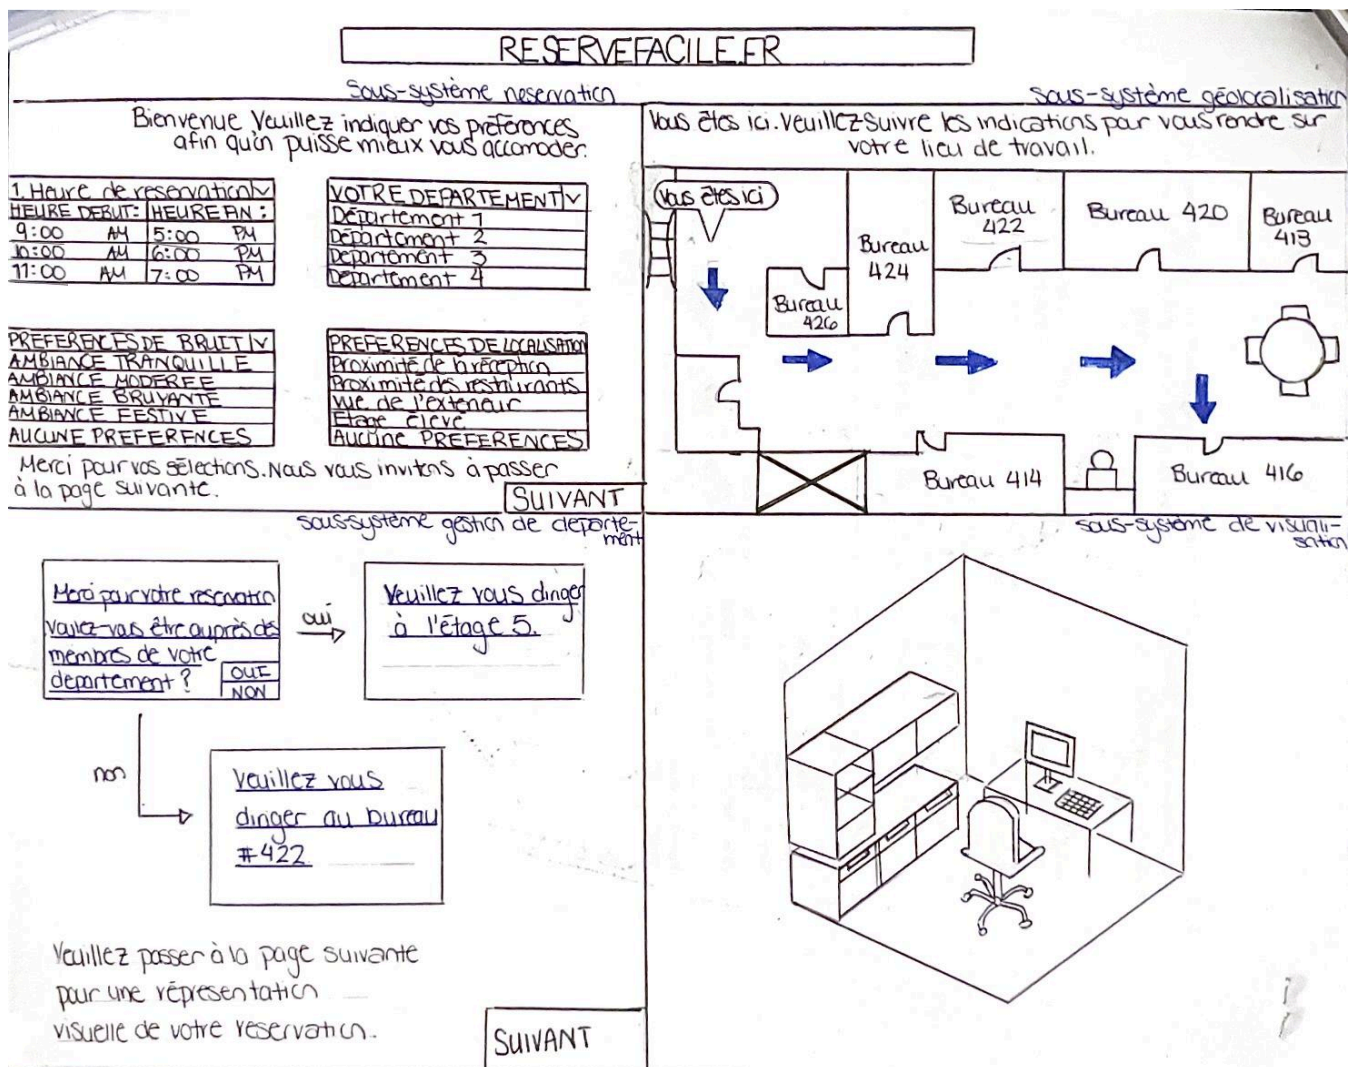 RESERVEFACILE.FR
Sous-système reservation
Bienvenue Veuillez indiquer vos préférences
afin qu'on puisse mieux vous accomoder.
1. Heure de reservation
HEURE DEBUT: HEURE FIN :
9:00 AM 5:00 PM
10:00 AM 6:00 PM
11:00 AM 7:00 PM
VOTRE DEPARTEMENT
Département 1
Département 2
Departement 3
Département 4
PREFERENCES DE BRUIT
AMBIANCE TRANQUILLE
AMBIANCE MODEREE
AMBIANCE BRUYANTE
AMBIANCE FESTIVE
AUCUNE PREFERENCES
PREFERENCES DE LOCALISATION
Proximité de la réception
Proximité des restaurants
Vue de l'exterieur
Etage élevé
AUCUNE PREFERENCES
Merci pour vos sélections. Nous vous invitons à passer
à la page suivante.
SUIVANT
Sous-système géolocalisation
Vous êtes ici. Veuillez suivre les indications pour vous rendre sur
votre lieu de travail.
Vous êtes ici
Bureau
426
Bureau
424
Bureau
422
Bureau 420
Bureau
413
Bureau 414
Bureau 416
sous-système gestion de departe-
ment
Merci pour votre reservation
voulez-vous être auprès des
membres de votre
departement ?
OUI
NON
oui
Veuillez vous diriger
à l'étage 5.
non
Veuillez vous
diriger au bureau
#422.
Veuillez passer à la page suivante
pour une répresentation
visuelle de votre reservation.
SUIVANT
sous-système de visuali-
sation